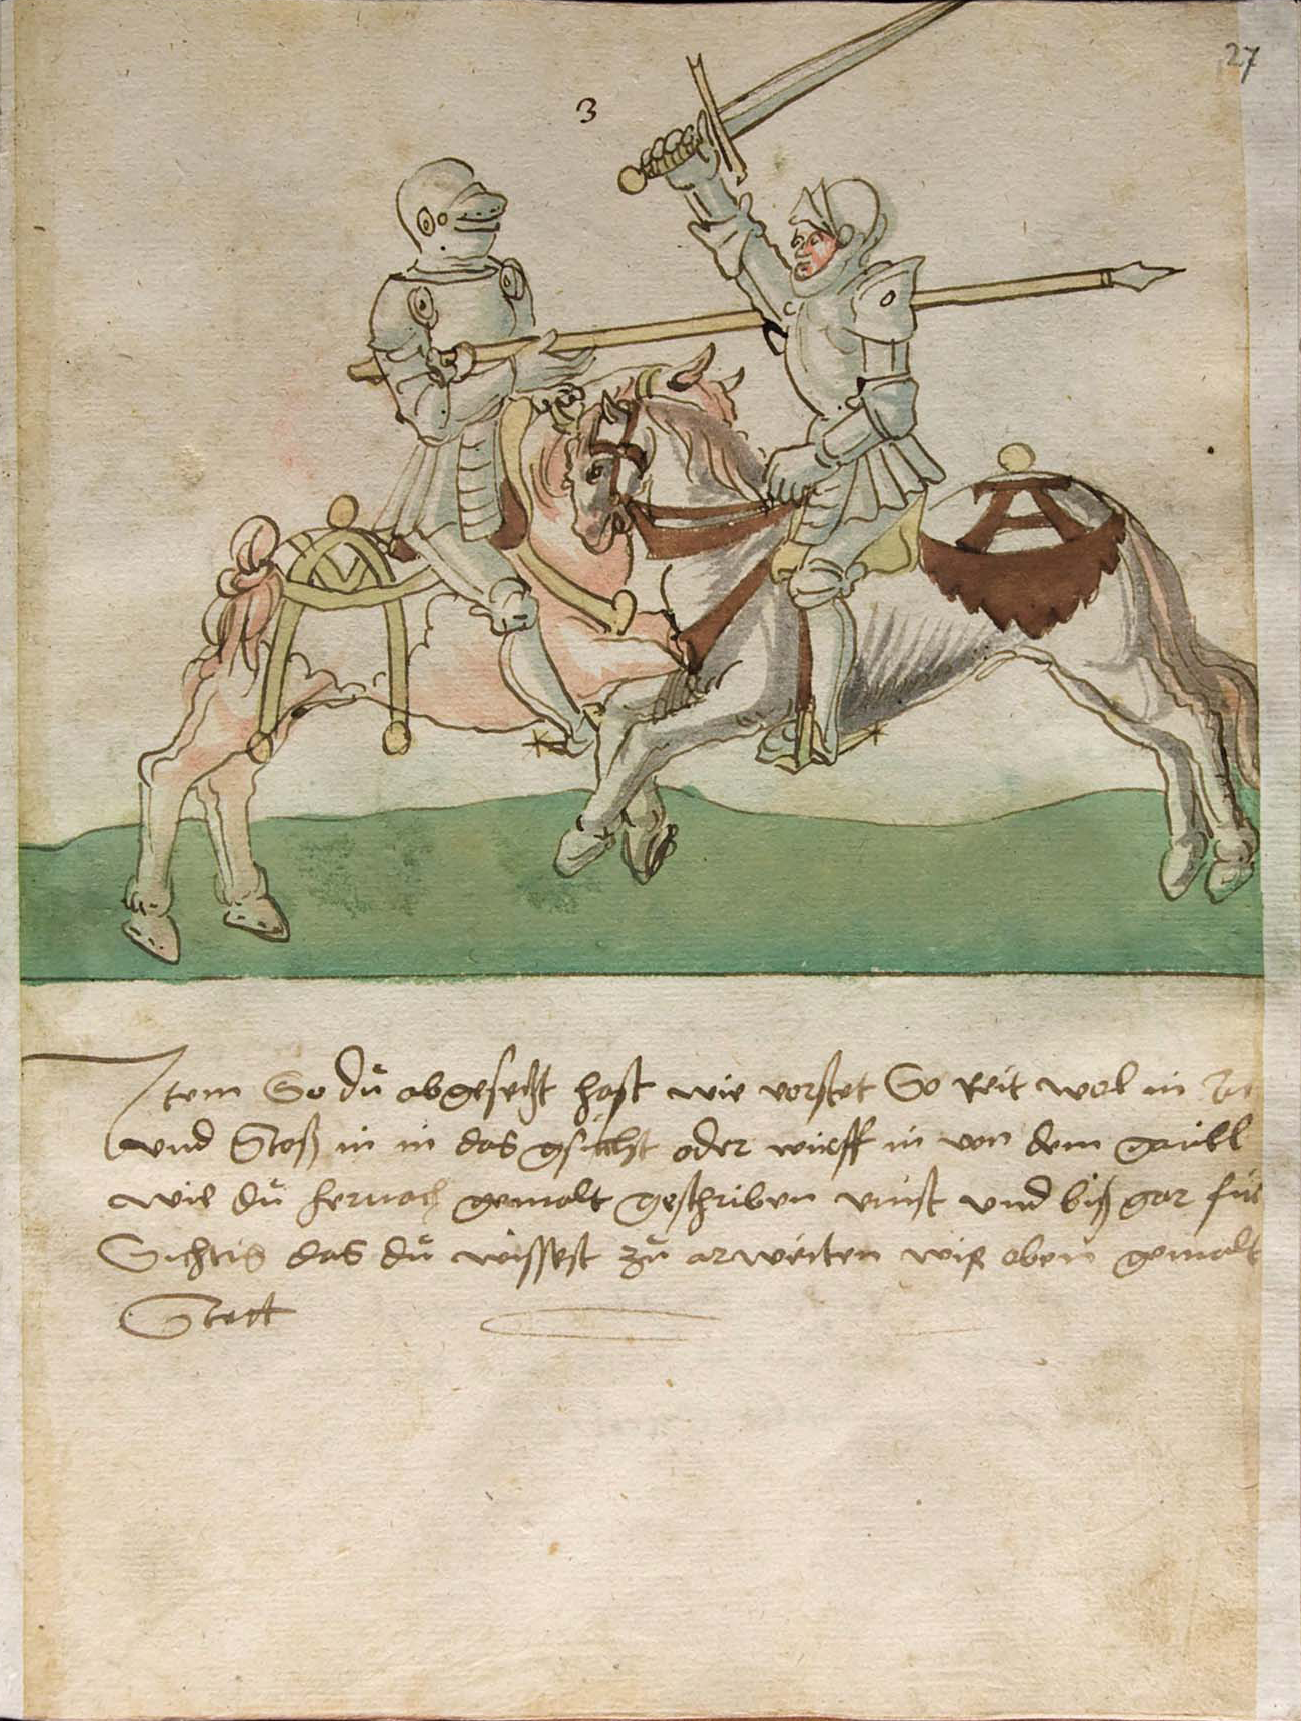 27
3
Item So du abgesetzt hast wie vorstet So Reit wol in
und Stoß in in das gsicht oder wirff in von dem gaull
wie du hernach gemalt geschriben vinst und biß gar für
Sichtig das du wissest zu arweiten wie oben gemalt
Stett